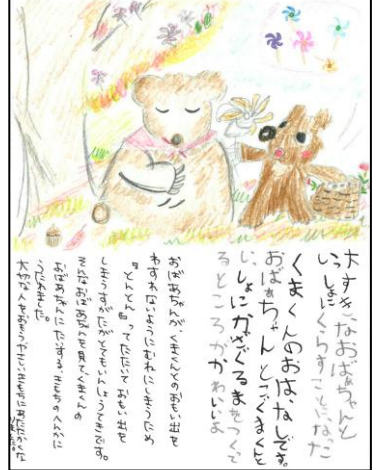 大すきなおばあちゃんと
いっしょにくらすことになった
くまくんのおはなしです。
おばあちゃんとこぐまくんと
いっしょにかざぐるまをつくて
るところがかわいいよ
おばあちゃんが、くまくんとのおもい出を
わすれないようにむねにしまうため
『とんとん』ってたたいておもい出を
しまうすがたがとてもいんしょうてきです。
そんなおばあちゃんを見て、くまくんの
おばあちゃんにたいする、きもちのへんかに
うたれました。
大切な人をおもうやさしいきもちにあたたかくな